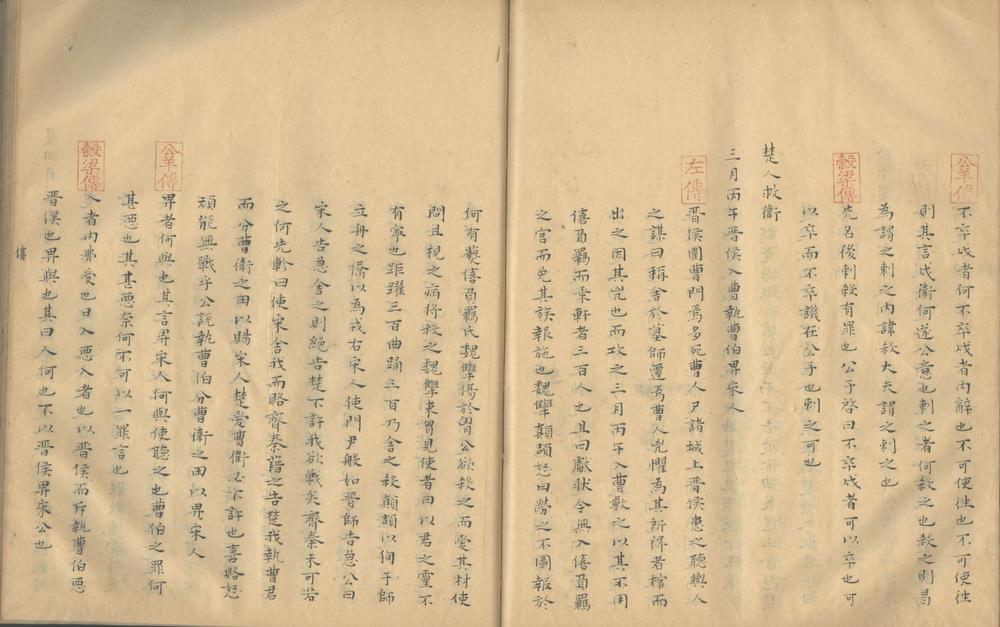 公羊傳
不卒戍者何不卒戍者內辭也不可使往也不可使往
則其言戍衛何遂公意也刺之者何殺之也殺之則曷
為謂之刺之內諱殺大夫謂之刺之也
穀梁傳
先名後刺殺有罪也公子啓曰不卒戍者可以卒也可
以卒而不卒譏在公子也刺之可也
楚人救衛
三月丙午晉侯入曹執曹伯畀宋人
左傳
晉侯圍曹門焉多死曹人尸諸城上晉侯患之聽輿人
之謀曰稱舍於墓師遷焉曹人兇懼為其所得者棺而
出之因其兇也而攻之三月丙午入曹數之以其不用
僖負羈而乘軒者三百人也且曰獻狀令無入僖負羈
之宮而免其族報施也魏犨顛頡怒曰勞之不圖報於
何有爇僖負羈氏魏犨傷於胷公欲殺之而愛其材使
問且視之病將殺之魏犨束胷見使者曰以君之靈不
有寧也距躍三百曲踊三百乃舍之殺顛頡以徇于師
立舟之僑以為戎右宋人使門尹般如晉師告急公曰
宋人告急舍之則絕告楚不許我欲戰矣齊秦未可若
之何先軫曰使宋舍我而賂齊秦藉之告楚我執曹君
而分曹衛之田以賜宋人楚愛曹衛必不許也喜賂怒
頑能無戰乎公說執曹伯分曹衛之田以畀宋人
公羊傳
畀者何與也其言畀宋人何與使聽之也曹伯之罪何
甚惡也其甚惡奈何不可以一罪言也
穀梁傳
入者內弗受也日入惡入者也以晉侯而斥執曹伯惡
晉侯也畀與也其曰人何也不以晉侯畀宋公也
僖